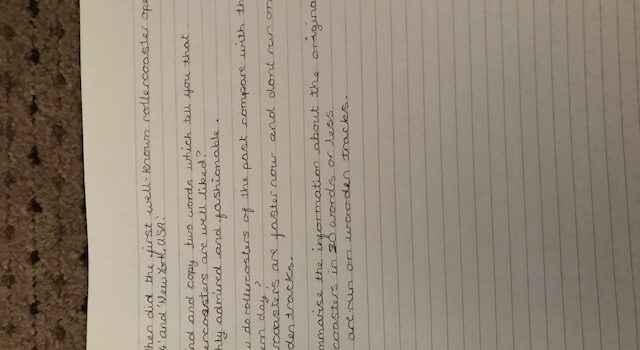 hen did the first well-known rollercoaster ope
4' and 'New York, USA.'
nd and copy two words which tell you that
ercoasters are well liked?
hly admired and fashionable.
w do rollercosters of the past compare with th
ern day?
rcoasters are faster now and dont run on
den tracks.
mmarise the information about the origina
coasters in 20 words or less.
are run on wooden tracks.